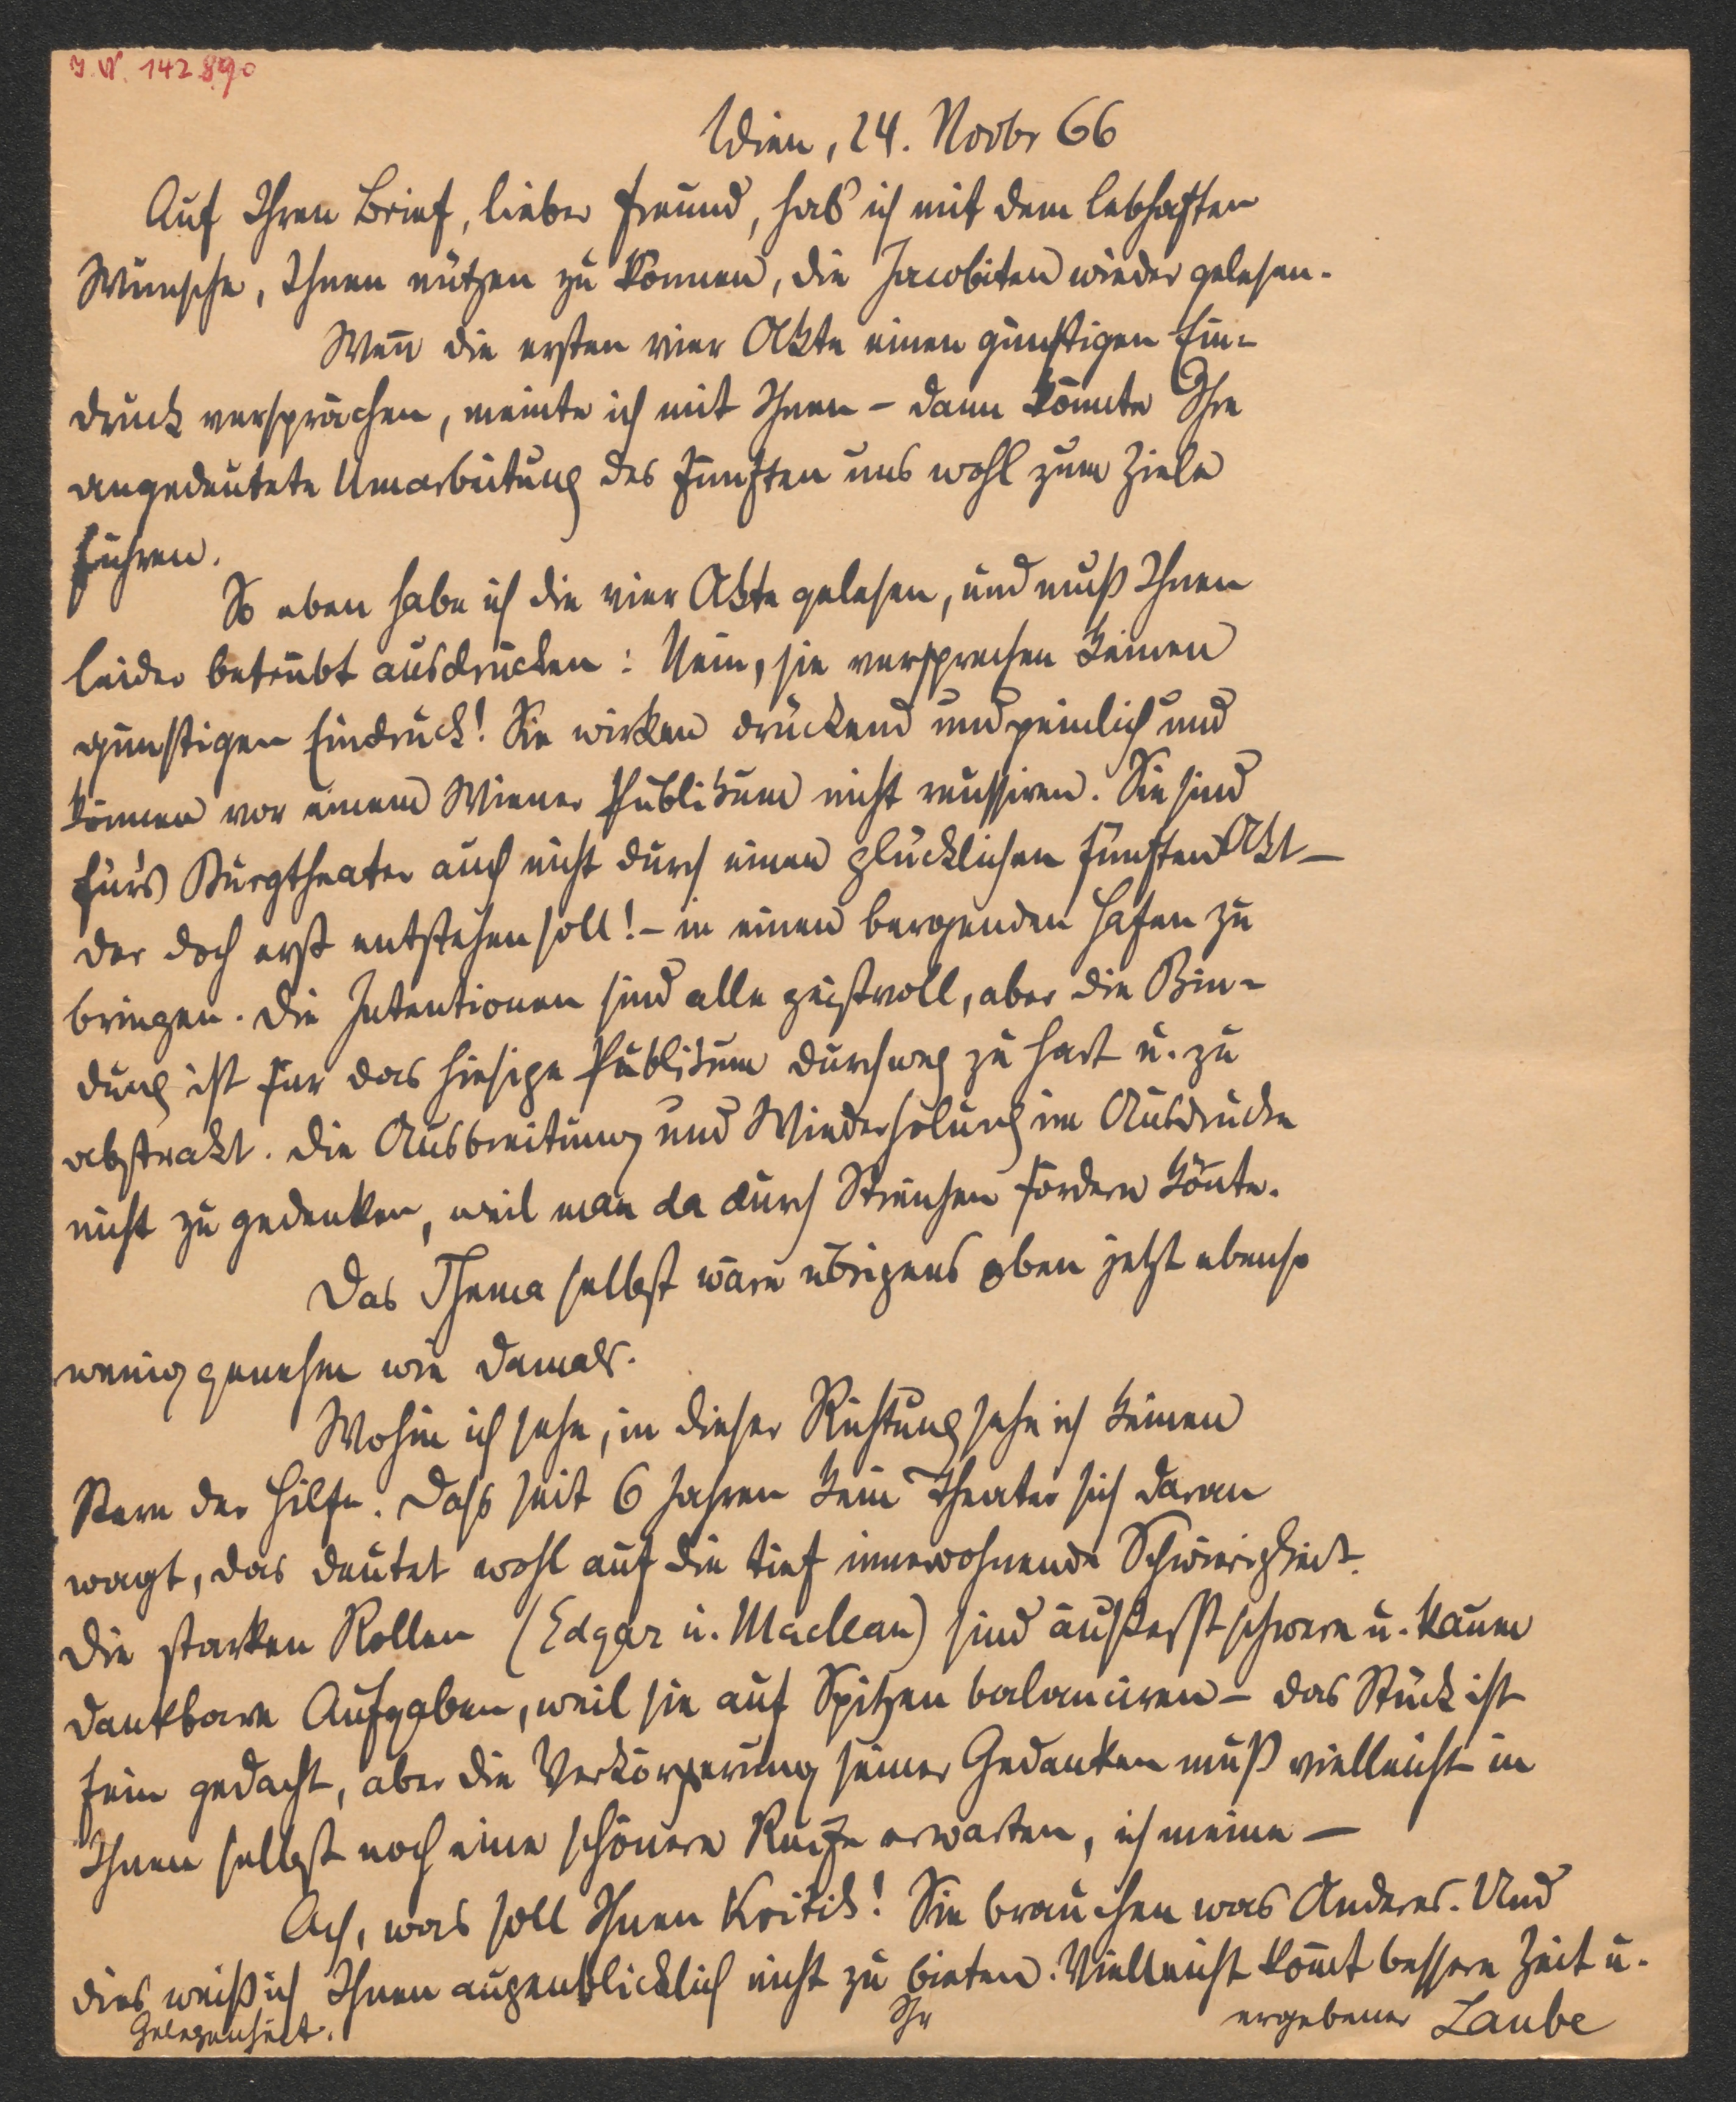 I. N. 142890
Wien, 24. Novbr 66
Auf Ihren Brief, lieber Freund, hab ich mit dem lebhaften
Wunsche, Ihnen nützen zu können, die Jacobiten wieder gelesen.
Weñ die ersten vier Akte einen günstigen Ein-
druck versprächen, meinte ich mit Ihnen – dann könnte Ihre
angedeutete Umarbeitung des fünften uns wohl zum Ziele
führen.
So eben habe ich die vier Akte gelesen, und muß Ihnen
leider betrübt ausdrücken: Nein, sie versprechen keinen
günstigen Eindruck! Sie wirken drückend und peinlich und
können vor einem Wiener Publikum nicht reussiren. Sie sind
für's Burgtheater auch nicht durch einen glücklichen fünften Akt –
der doch erst entstehen soll! – in einen bergenden Hafen zu
bringen. Die Intentionen sind alle geistvoll, aber die Bin-
dung ist für das hiesige Publikum durchweg zu hart u. zu
abstrakt. Die Ausbreitung und Wiederholung im Ausdrucke
nicht zu gedenken, weil man da durch Streichen fördern köñte.
Das Thema selbst wäre übrigens eben jetzt ebenso
wenig genehm wie damals.
Wohin ich sehe, in dieser Richtung sehe ich keinen
Stern der Hilfe. Dass seit 6 Jahren kein Theater sich daran
wagt, das deutet wohl auf die tief innewohnende Schwierigkeit.
Die starken Rollen (Edgar u. Maclean) sind äußerst schwere u. kaum
dankbare Aufgaben, weil sie auf Spitzen balanciren – das Stück ist
fein gedacht, aber die Verkörperung seiner Gedanken muß vielleicht in
Ihnen selbst noch eine schönere Reife erwarten, ich meine –
Ach, was soll Ihnen Kritik! Sie brauchen was Anderes. Und
dies weiß ich Ihnen augenblicklich nicht zu bieten. Vielleicht kom̃t bessere Zeit u.
Gelegenheit. Ihr ergebener Laube